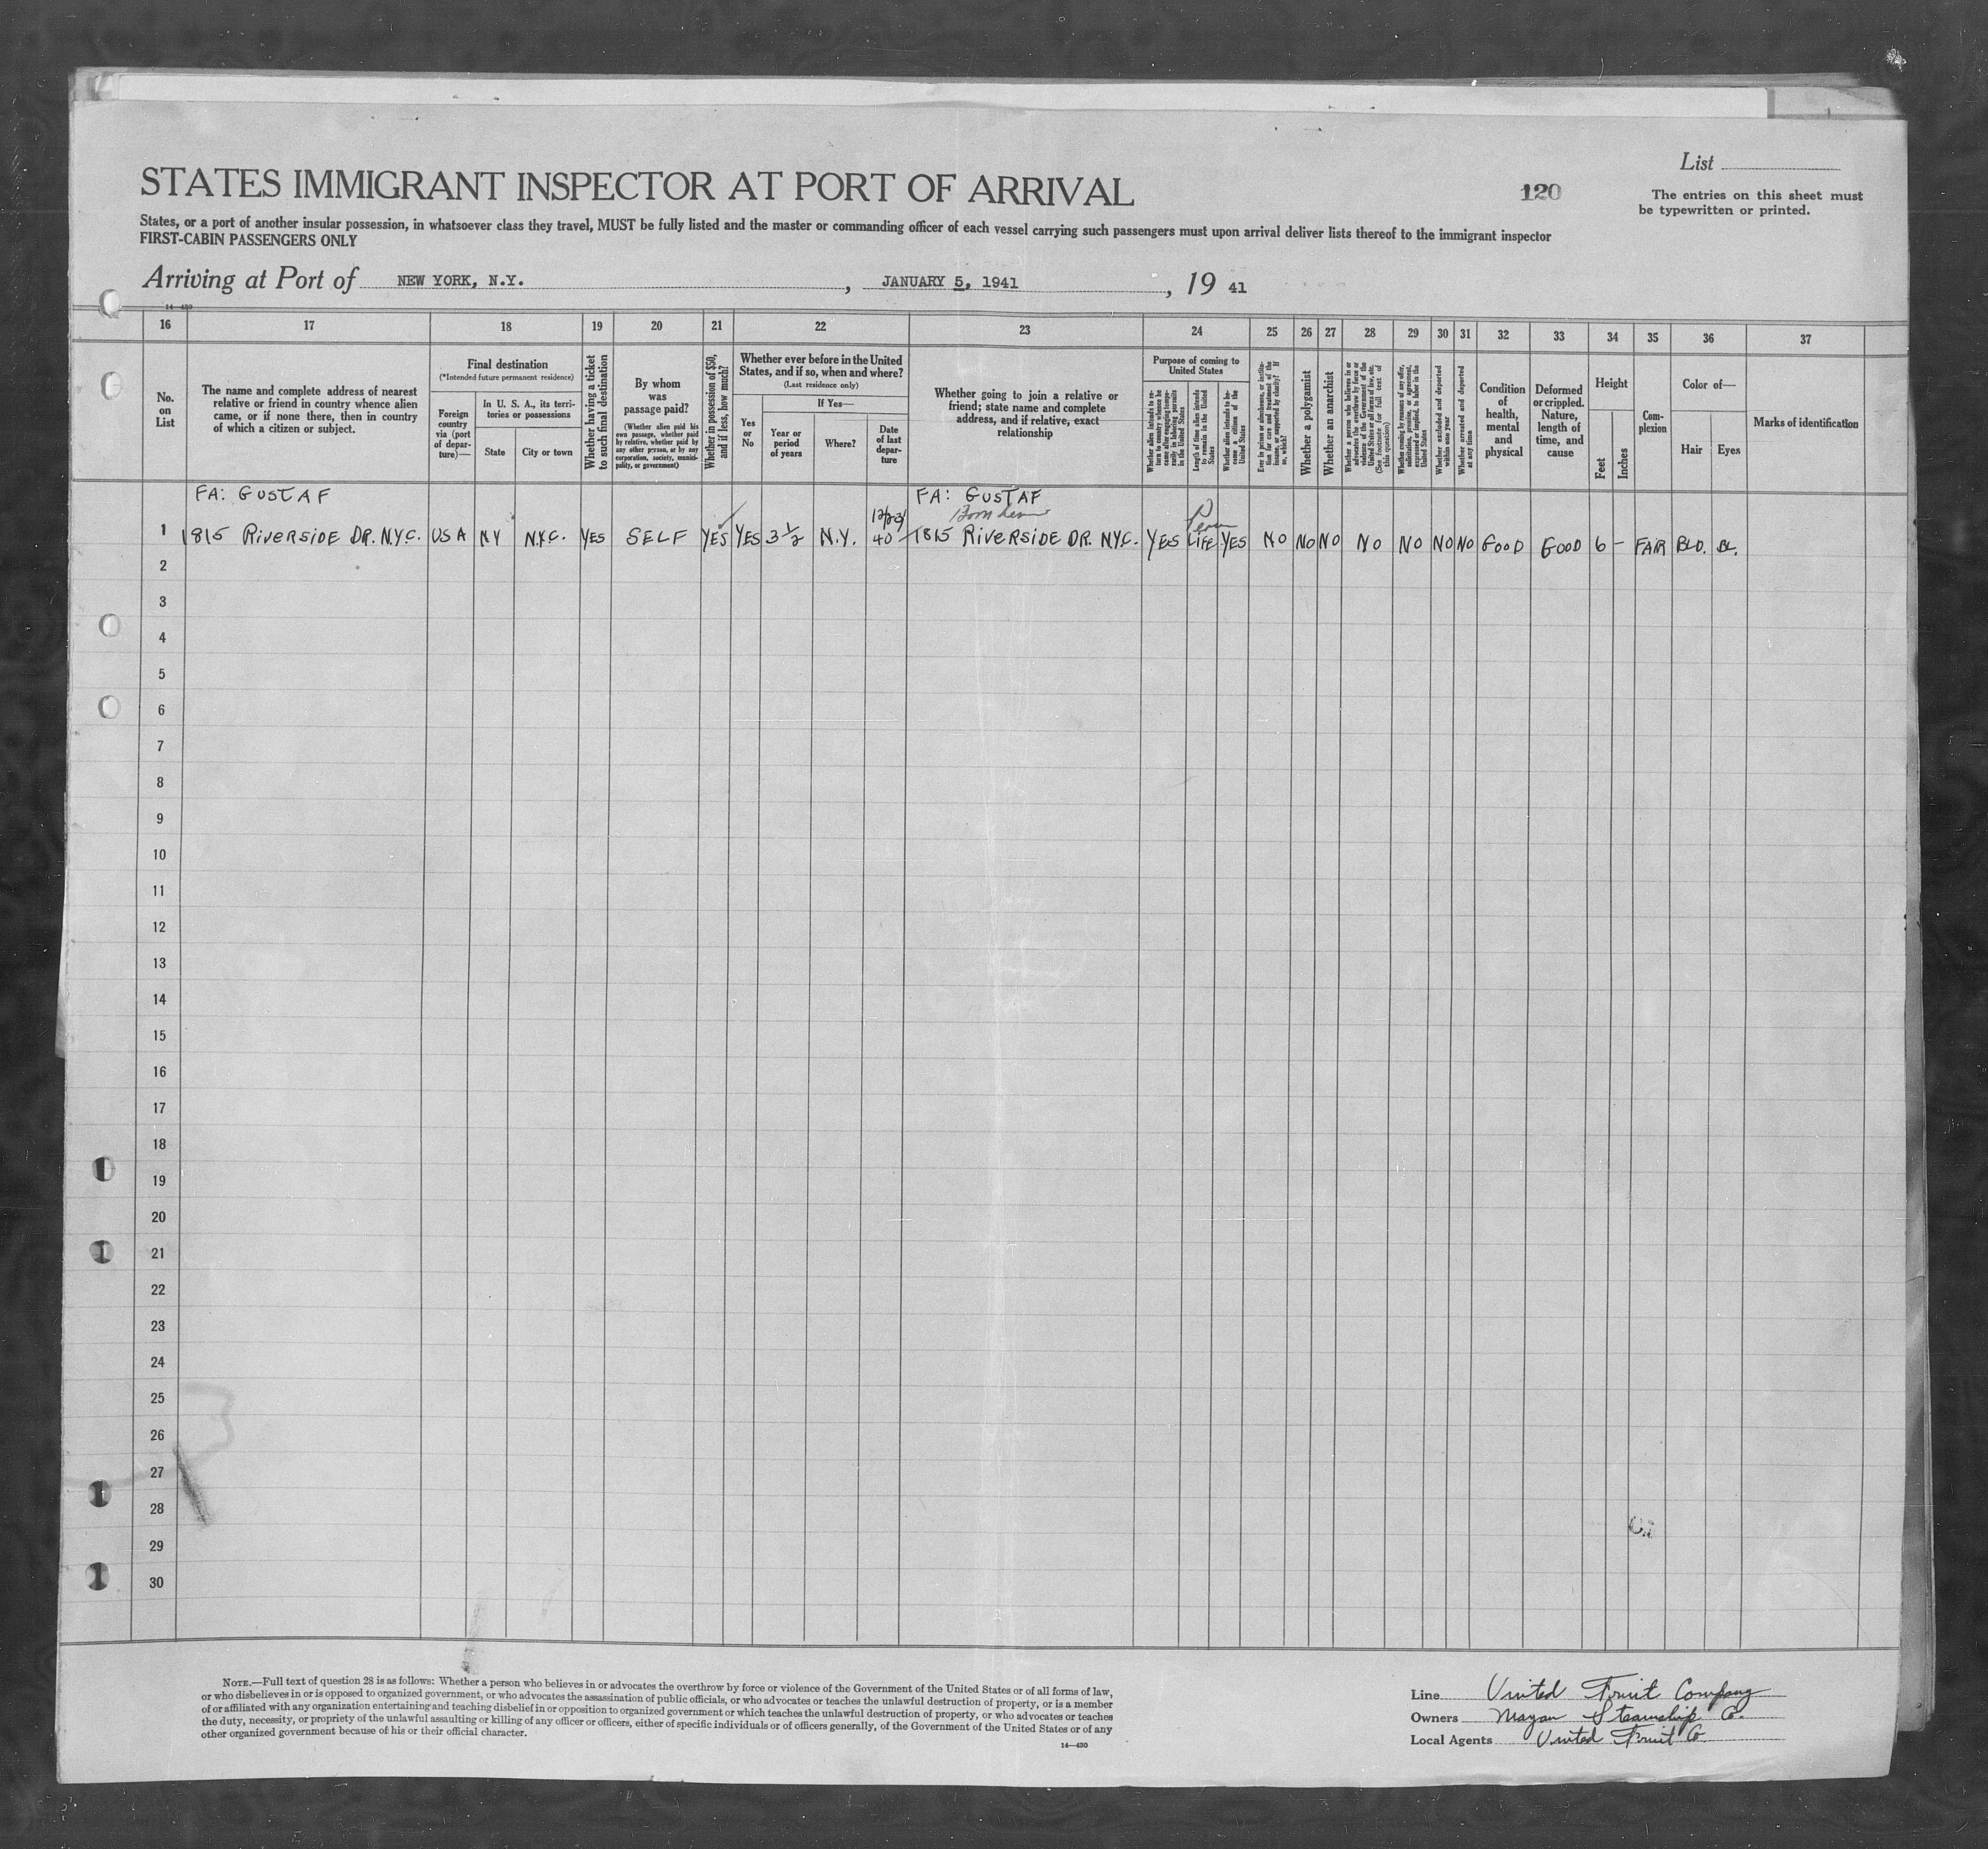 List
STATES IMMIGRANT INSPECTOR AT PORT OF ARRIVAL
120
The entries on this sheet must
be typewritten or printed.
States, or a port of another insular possession, in whatsoever class they travel, MUST be fully listed and the master or commanding officer of each vessel carrying such passengers must upon arrival deliver lists thereof to the immigrant inspector
FIRST-CABIN PASSENGERS ONLY
Arriving at Port of NEW YORK, N.Y. , JANUARY 5, 1941 , 19 41
14—430
16 17 18 19 20 21 22 23 24 25 26 27 28 29 30 31 32 33 34 35 36 37
No.
on
List
The name and complete address of nearest
relative or friend in country whence alien
came, or if none there, then in country
of which a citizen or subject.
Final destination
(*Intended future permanent residence)
Foreign
country
via (port
of depar-
ture)—
In U. S. A., its terri-
tories or possessions
State
City or town
Whether having a ticket
to such final destination
By whom
was
passage paid?
(Whether alien paid his
own passage, whether paid
by relative, whether paid by
any other person, or by any
corporation, society, munici-
pality, or government)
Whether in possession of $50,
and if less, how much?
Whether ever before in the United
States, and if so, when and where?
(Last residence only)
Yes
or
No
If Yes—
Year or
period
of years
Where?
Date
of last
depar-
ture
Whether going to join a relative or
friend; state name and complete
address, and if relative, exact
relationship
Purpose of coming to
United States
Whether alien intends to re-
turn to country whence he
came after engaging tempo-
rarily in laboring pursuits
in the United States
Length of time alien intends
to remain in the United
States
Whether alien intends to be-
come a citizen of the
United States
Ever in prison or almshouse, or institu-
tion for care and treatment of the
insane, or supported by charity? If
so, which?
Whether a polygamist
Whether an anarchist
Whether a person who believes in or
advocates the overthrow by force or
violence of the Government of the
United States or all forms of law, etc.
(See footnote for full text of
this question)
Whether coming by reasons of any offer,
solicitation, promise, or agreement,
expressed or implied, to labor in the
United States
Whether excluded and deported
within one year
Whether arrested and deported
at any time
Condition
of
health,
mental
and
physical
Deformed
or crippled.
Nature,
length of
time, and
cause
Height
Feet
Inches
Com-
plexion
Color of—
Hair
Eyes
Marks of identification
FA: GUSTAF FA: GUSTAF
12/23/ Perm
1 1815 RIVERSIDE DR. N.Y.C. USA NY N.Y.C. YES SELF YES YES 3 1/2 N.Y. 40 1815 RIVERSIDE DR. NYC. YES LIFE YES NO NO NO NO NO NO NO GOOD GOOD 6 – FAIR BLD. BL.
2
3
4
5
6
7
8
9
10
11
12
13
14
15
16
17
18
19
20
21
22
23
24
25
26
27
28
29
30
NOTE.—Full text of question 28 is as follows: Whether a person who believes in or advocates the overthrow by force or violence of the Government of the United States or of all forms of law,
or who disbelieves in or is opposed to organized government, or who advocates the assassination of public officials, or who advocates or teaches the unlawful destruction of property, or is a member
of or affiliated with any organization entertaining and teaching disbelief in or opposition to organized government or which teaches the unlawful destruction of property, or who advocates or teaches
the duty, necessity, or propriety of the unlawful assaulting or killing of any officer or officers, either of specific individuals or of officers generally, of the Government of the United States or of any
other organized government because of his or their official character.
14—430
Line United Fruit Company
Owners Mayan Steamship Co.
Local Agents United Fruit Co